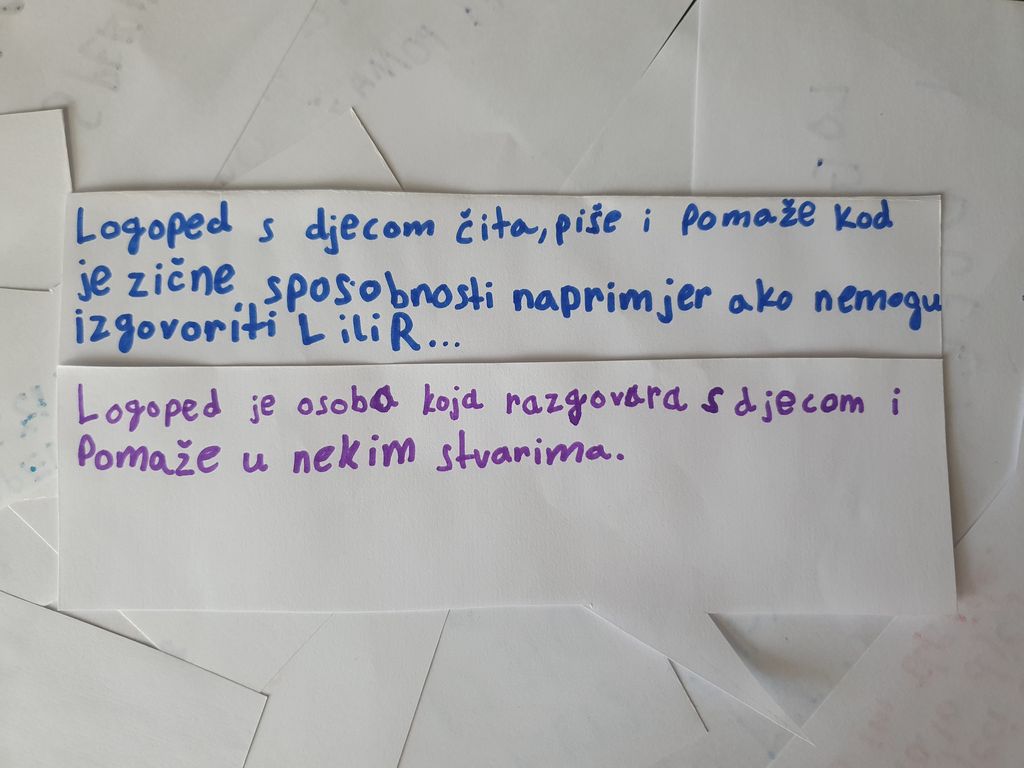 Logoped s djecom čita, piše i pomaže kod
jezične sposobnosti naprimjer ako nemogu
izgovoriti L ili R...
Logoped je osoba koja razgovara s djecom i
Pomaže u nekim stvarima.